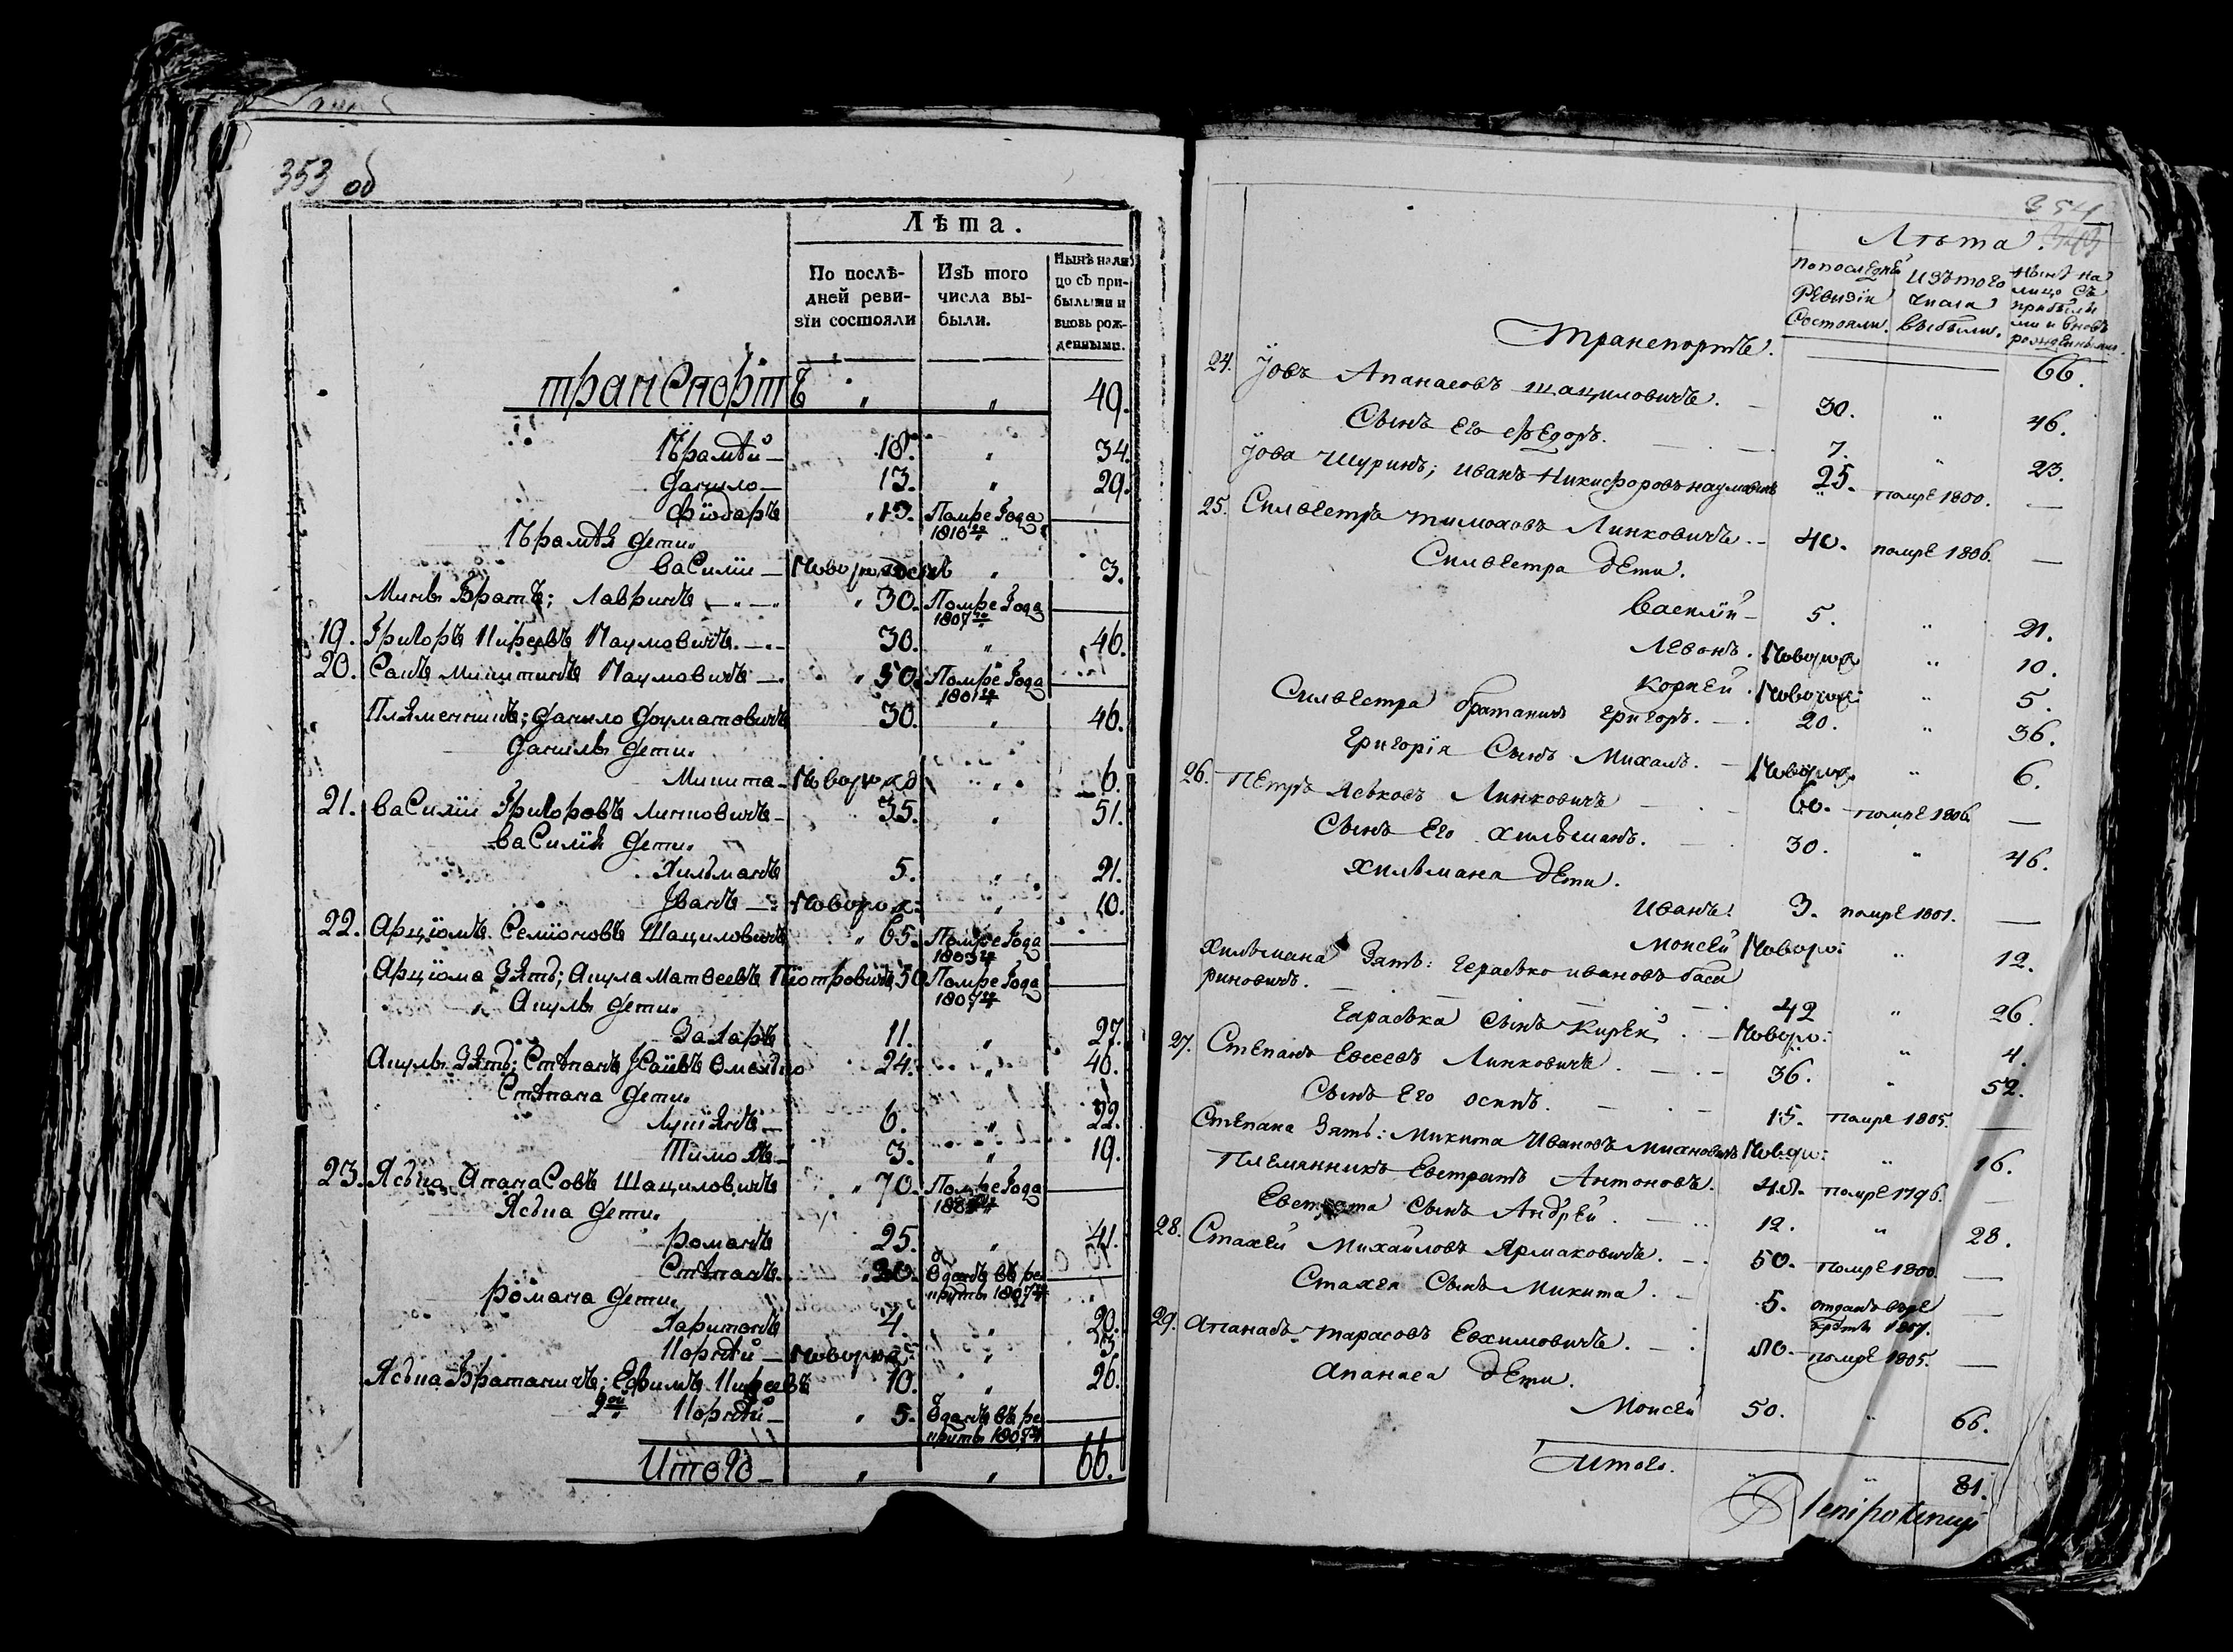 353 об
Лѣта.
По послѣ-
дней реви-
зіи состояли
Изъ того
числа вы-
были.
Нынѣ нали
цо съ при-
былыми и
вновь рож-
денными.
транспортъ " " 49.
18. " 34.
Данило — 13. " 29.
Фіодаръ " 13. Помре Года 1810го —
дети.
Василіи — Новорожденъ " 3.
братъ; Лавринъ — " 30. Помре Года 1807го —
19. Григоръ Наумовичъ — 30. " 46.
20. Наумовичъ — " 50. Помре Года 1801го —
Данило 30. " 46.
Данилы дети.
Микита — Новорожд " 6.
21. Василіи Григоровъ Линковичъ — 35. " 51.
Василія дети.
Хильманъ 5. " 21.
Иванъ — Новорож: " 10.
22. Арціомъ Семіоновъ Шациловичъ " 65. Помре Года
Арціома Зять; Акула Матвеевъ Піотровичъ 50. Помре Года 1807го —
Акулы дети.
Захаръ 11. " 27.
Акулы Зять; Стѣпанъ 24. " 40.
Стѣпана дети.
Лукіянъ — 6. " 22.
Тимохъ — 3. " 19.
23. Яська Апанасовъ Шациловичъ " 70. Помре Года
Яська дети.
Романъ 25. " 41.
Стѣпанъ. " 20. Одданъ въ ре круты 1807го —
Романа дети.
Харитонъ 4. " 20.
Корнѣй — Новорож: " 3
Яська Братаничъ; Ефимъ 10. " 26.
2ой Корнѣй — " 5. Одданъ въ ре круты 1807го —
Итого — " " 66.
354.
Лѣта.
По последней
Ревизіи
Состояли.
Изъ того
числа
выбыли.
Нынѣ на
лицо съ
прибылы
ми и вновь
рожденными.
транспортъ. 66.
24. Іовъ Апанасовъ Шациловичъ. — 30. " 46.
Сынъ Его Федоръ. 7. " 23.
Іова Шуринъ; Иванъ Никифоровъ Наумовичъ 25. помре 1800. —
25. Сильвестръ Тимоховъ Линковичъ. — 40. помре 1806. —
Сильвестра дети.
Василій — 5. " 21.
Левонъ. Новорож " 10.
Корней. Новорож: " 5.
Сильвестра братаничъ Григоръ. — 20. " 36.
Григорія Сынъ Михалъ. — Новорож. " 6.
26. Петръ Яськовъ Линковичъ 60. помре 1806. —
Сынъ Его Хильманъ. 30. " 46.
Хильмана дети.
Иванъ. 3. помре 1801. —
Моисей Новоро: " 12.
Хильмана Зять: Герасько Ивановъ Баса
риновичъ. 42 " 26.
Гараська Сынъ Кирей. — Новоро: " 4.
27. Степанъ Евсеевъ Линковичъ. — 36. " 52.
Сынъ Его Осипъ. — 15. помре 1805. —
Степана Зять: Микита Ивановъ Новоро: " 16.
Племянникъ Евстратъ Антоновъ. 48. помре 1796. —
Евстрата Сынъ Андрей. — 12. " 28.
28. Стахей Михайловъ Ярмаковичъ. — 50. помре 1800. —
Стахея Сынъ Микита. — 5. отданъ въ ре круты 1807. —
29. Апанасъ Тарасовъ Евхимовичъ. — 80. помре 1805. —
Апанаса дети.
Моисей 50. " 66.
Итого. " " 81.